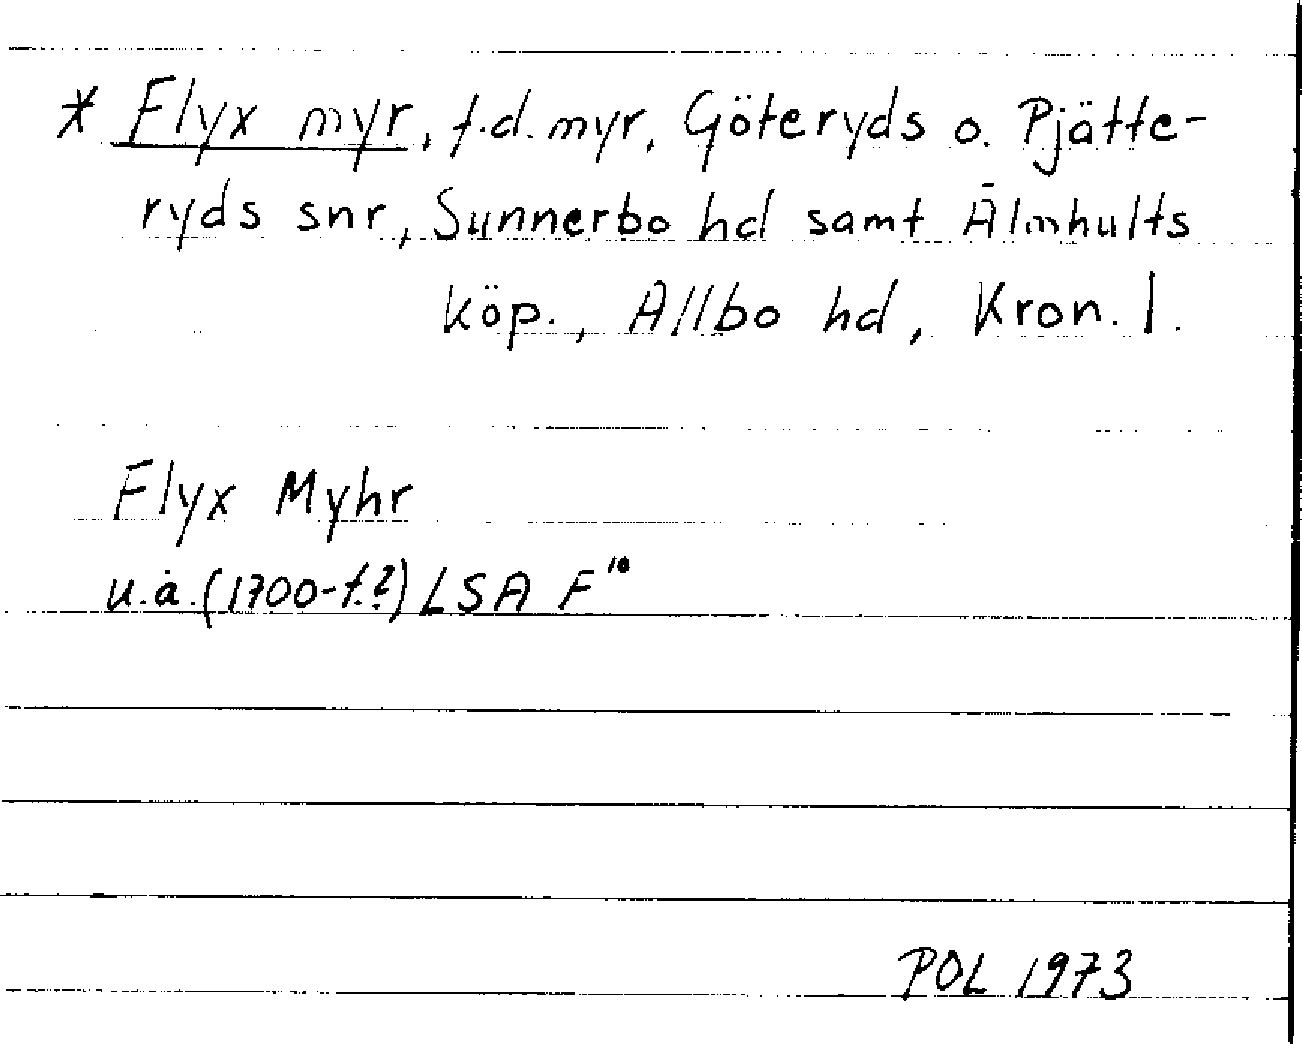 * Flyx myr, f.d. myr, Göteryds o. Pjätte-
ryds snr, Sunnerbo hd samt Älmhults
köp., Allbo hd, Kron. l.
Flyx Myhr
u.å. (1700-t.?) LSA F¹⁰
POL 1973